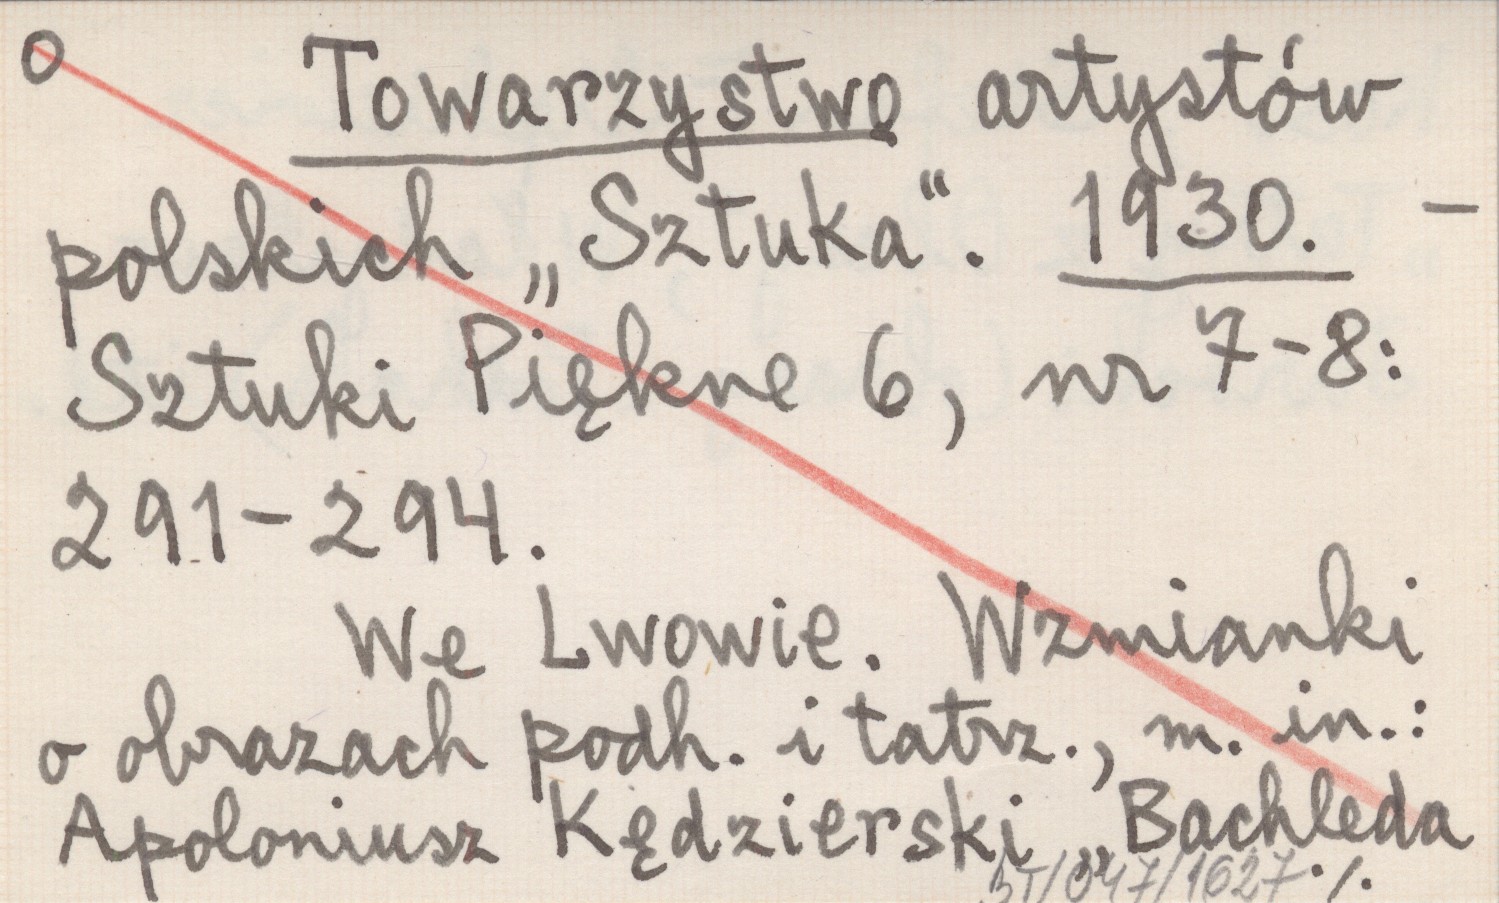 O Towarzystwo artystów
polskich „Sztuka“. 1930. –
Sztuki Piękne 6, nr 7-8:
291-294.
We Lwowie. Wzmianki
o obrazach podh. i tatrz., m. in.:
Apoloniusz Kędzierski „Bachleda
/047/1627 ./.